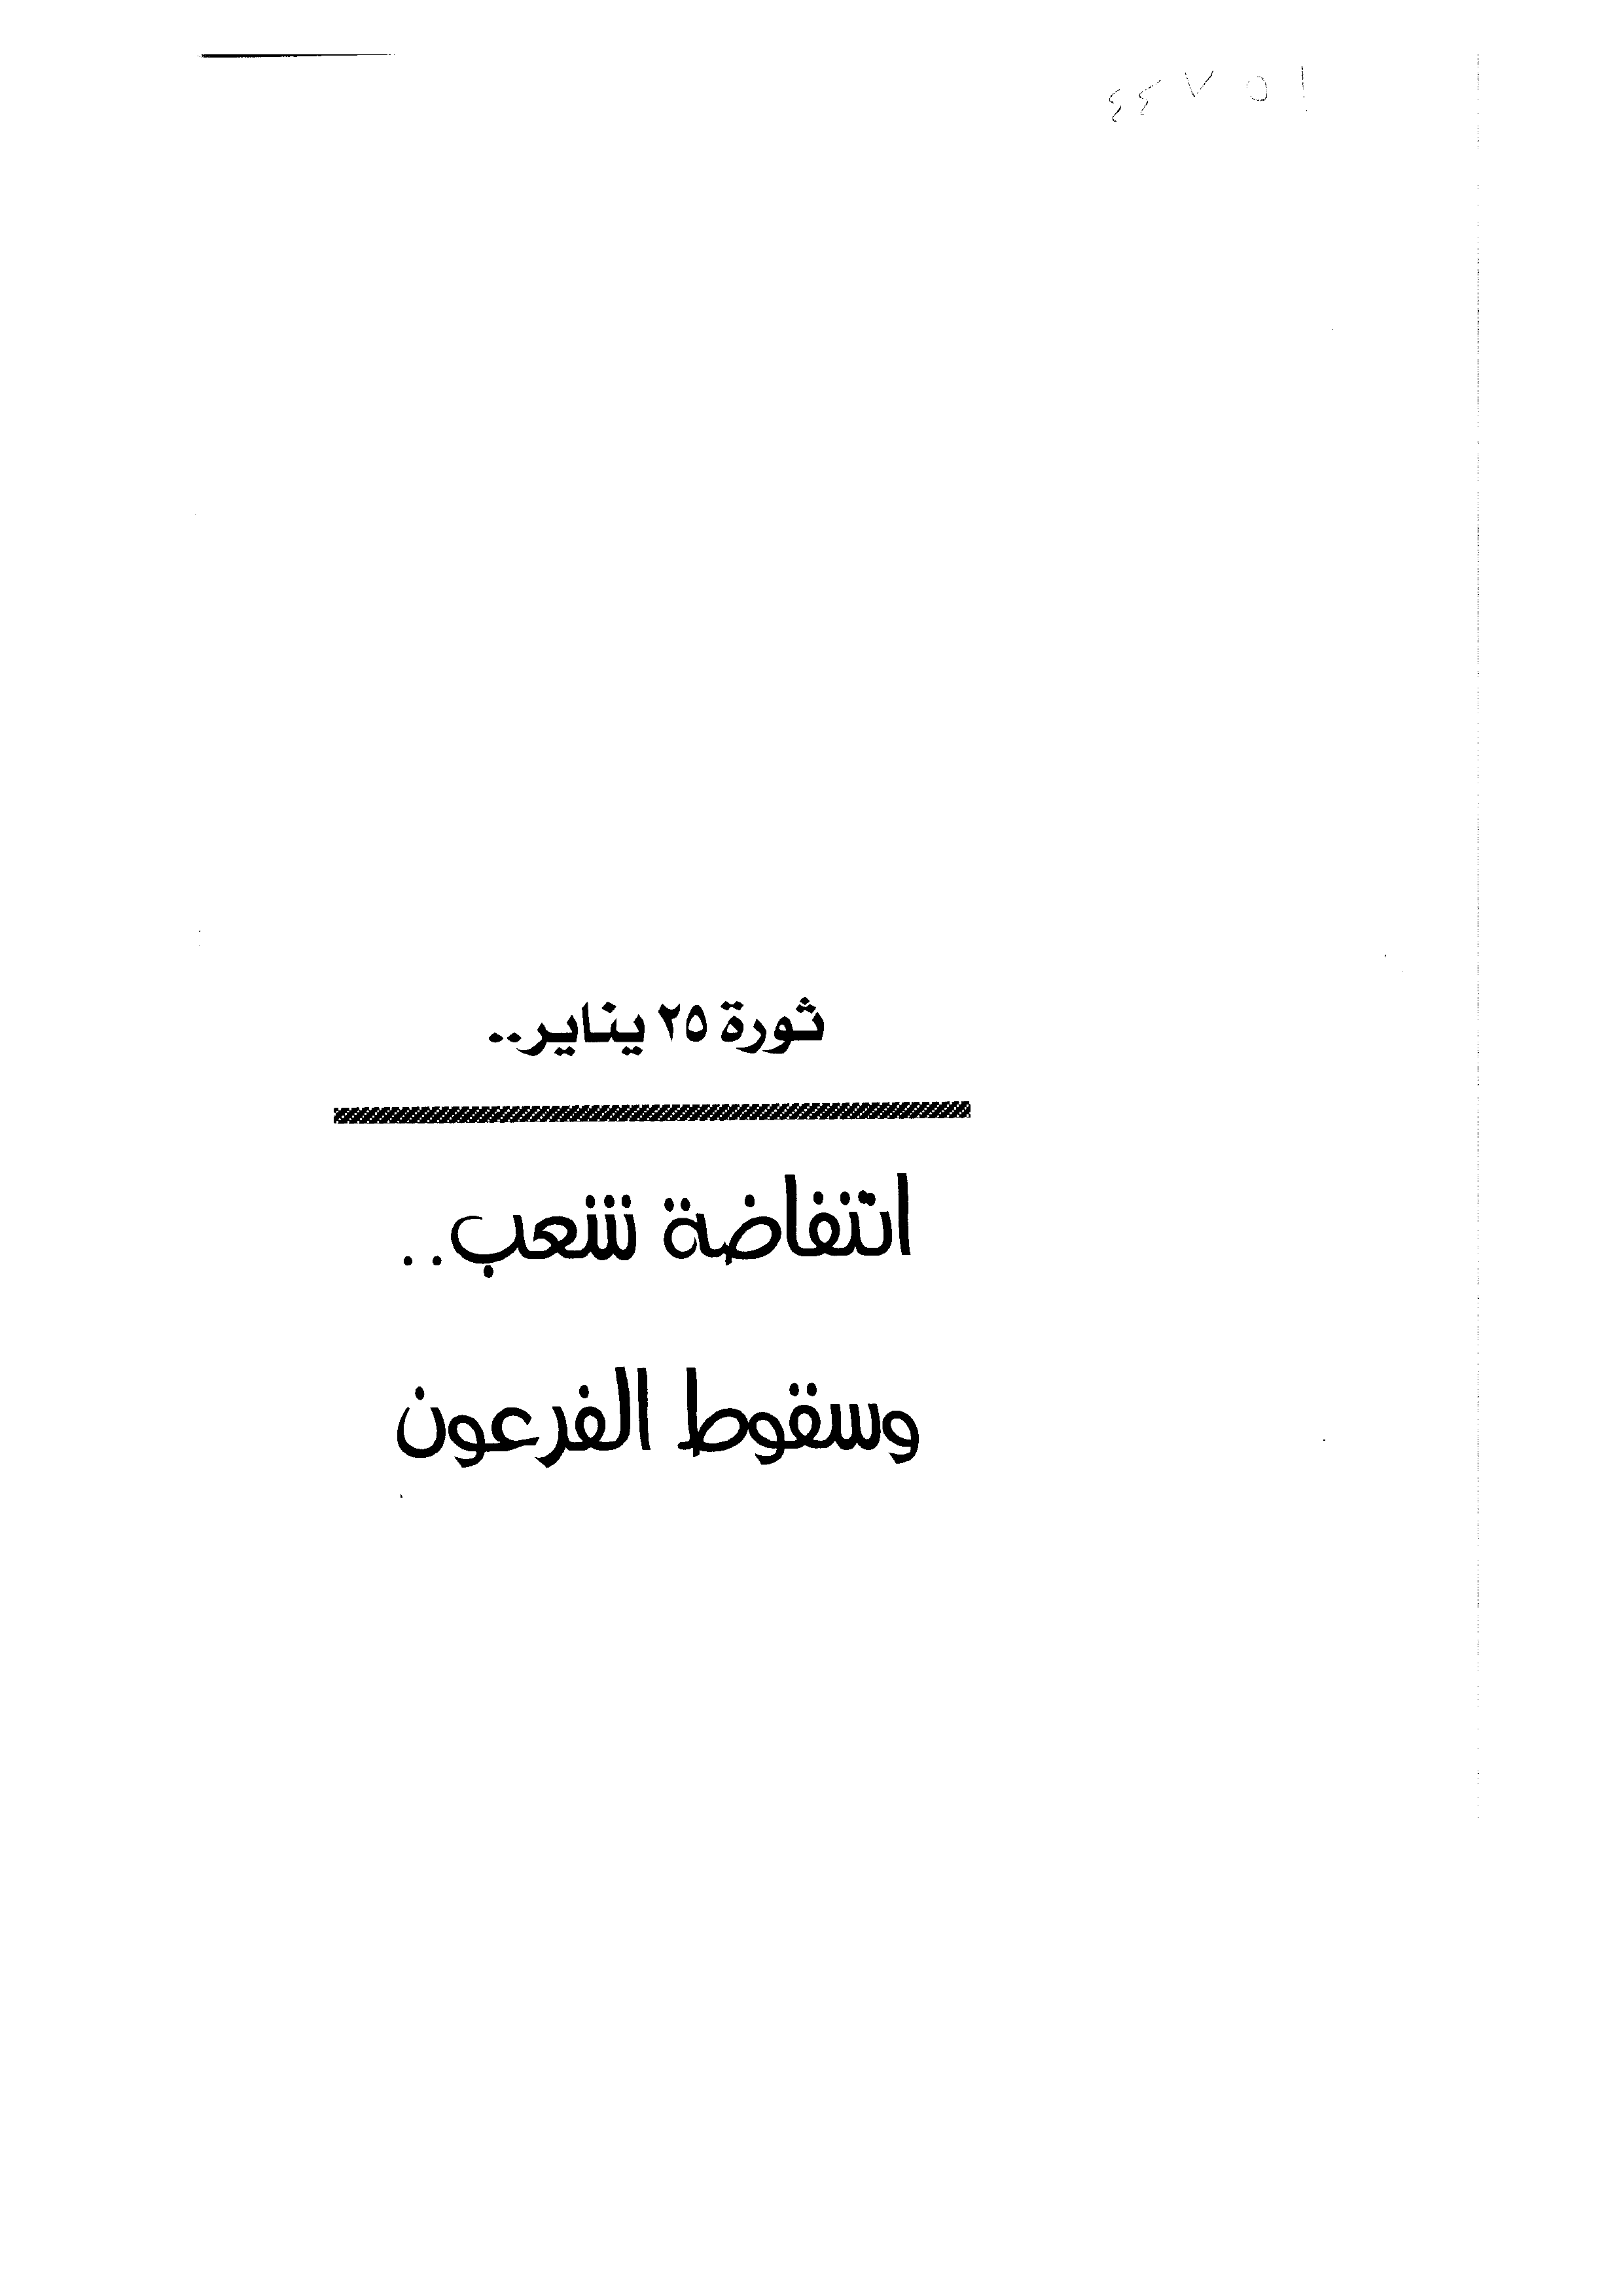 ٤٤٧٥١
ثورة ٢٥ يناير..
انتفاضة شعب..
وسقوط الفرعون